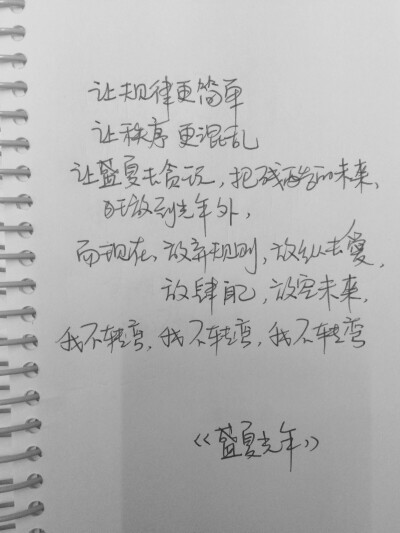 让规律更简单
让秩序更混乱
让盛夏去贪玩,把残酷的未来、
狂放到光年外,
而现在,放弃规则,放纵去爱,
放肆自己,放空未来,
我不转弯,我不转弯,我不转弯
《盛夏光年》